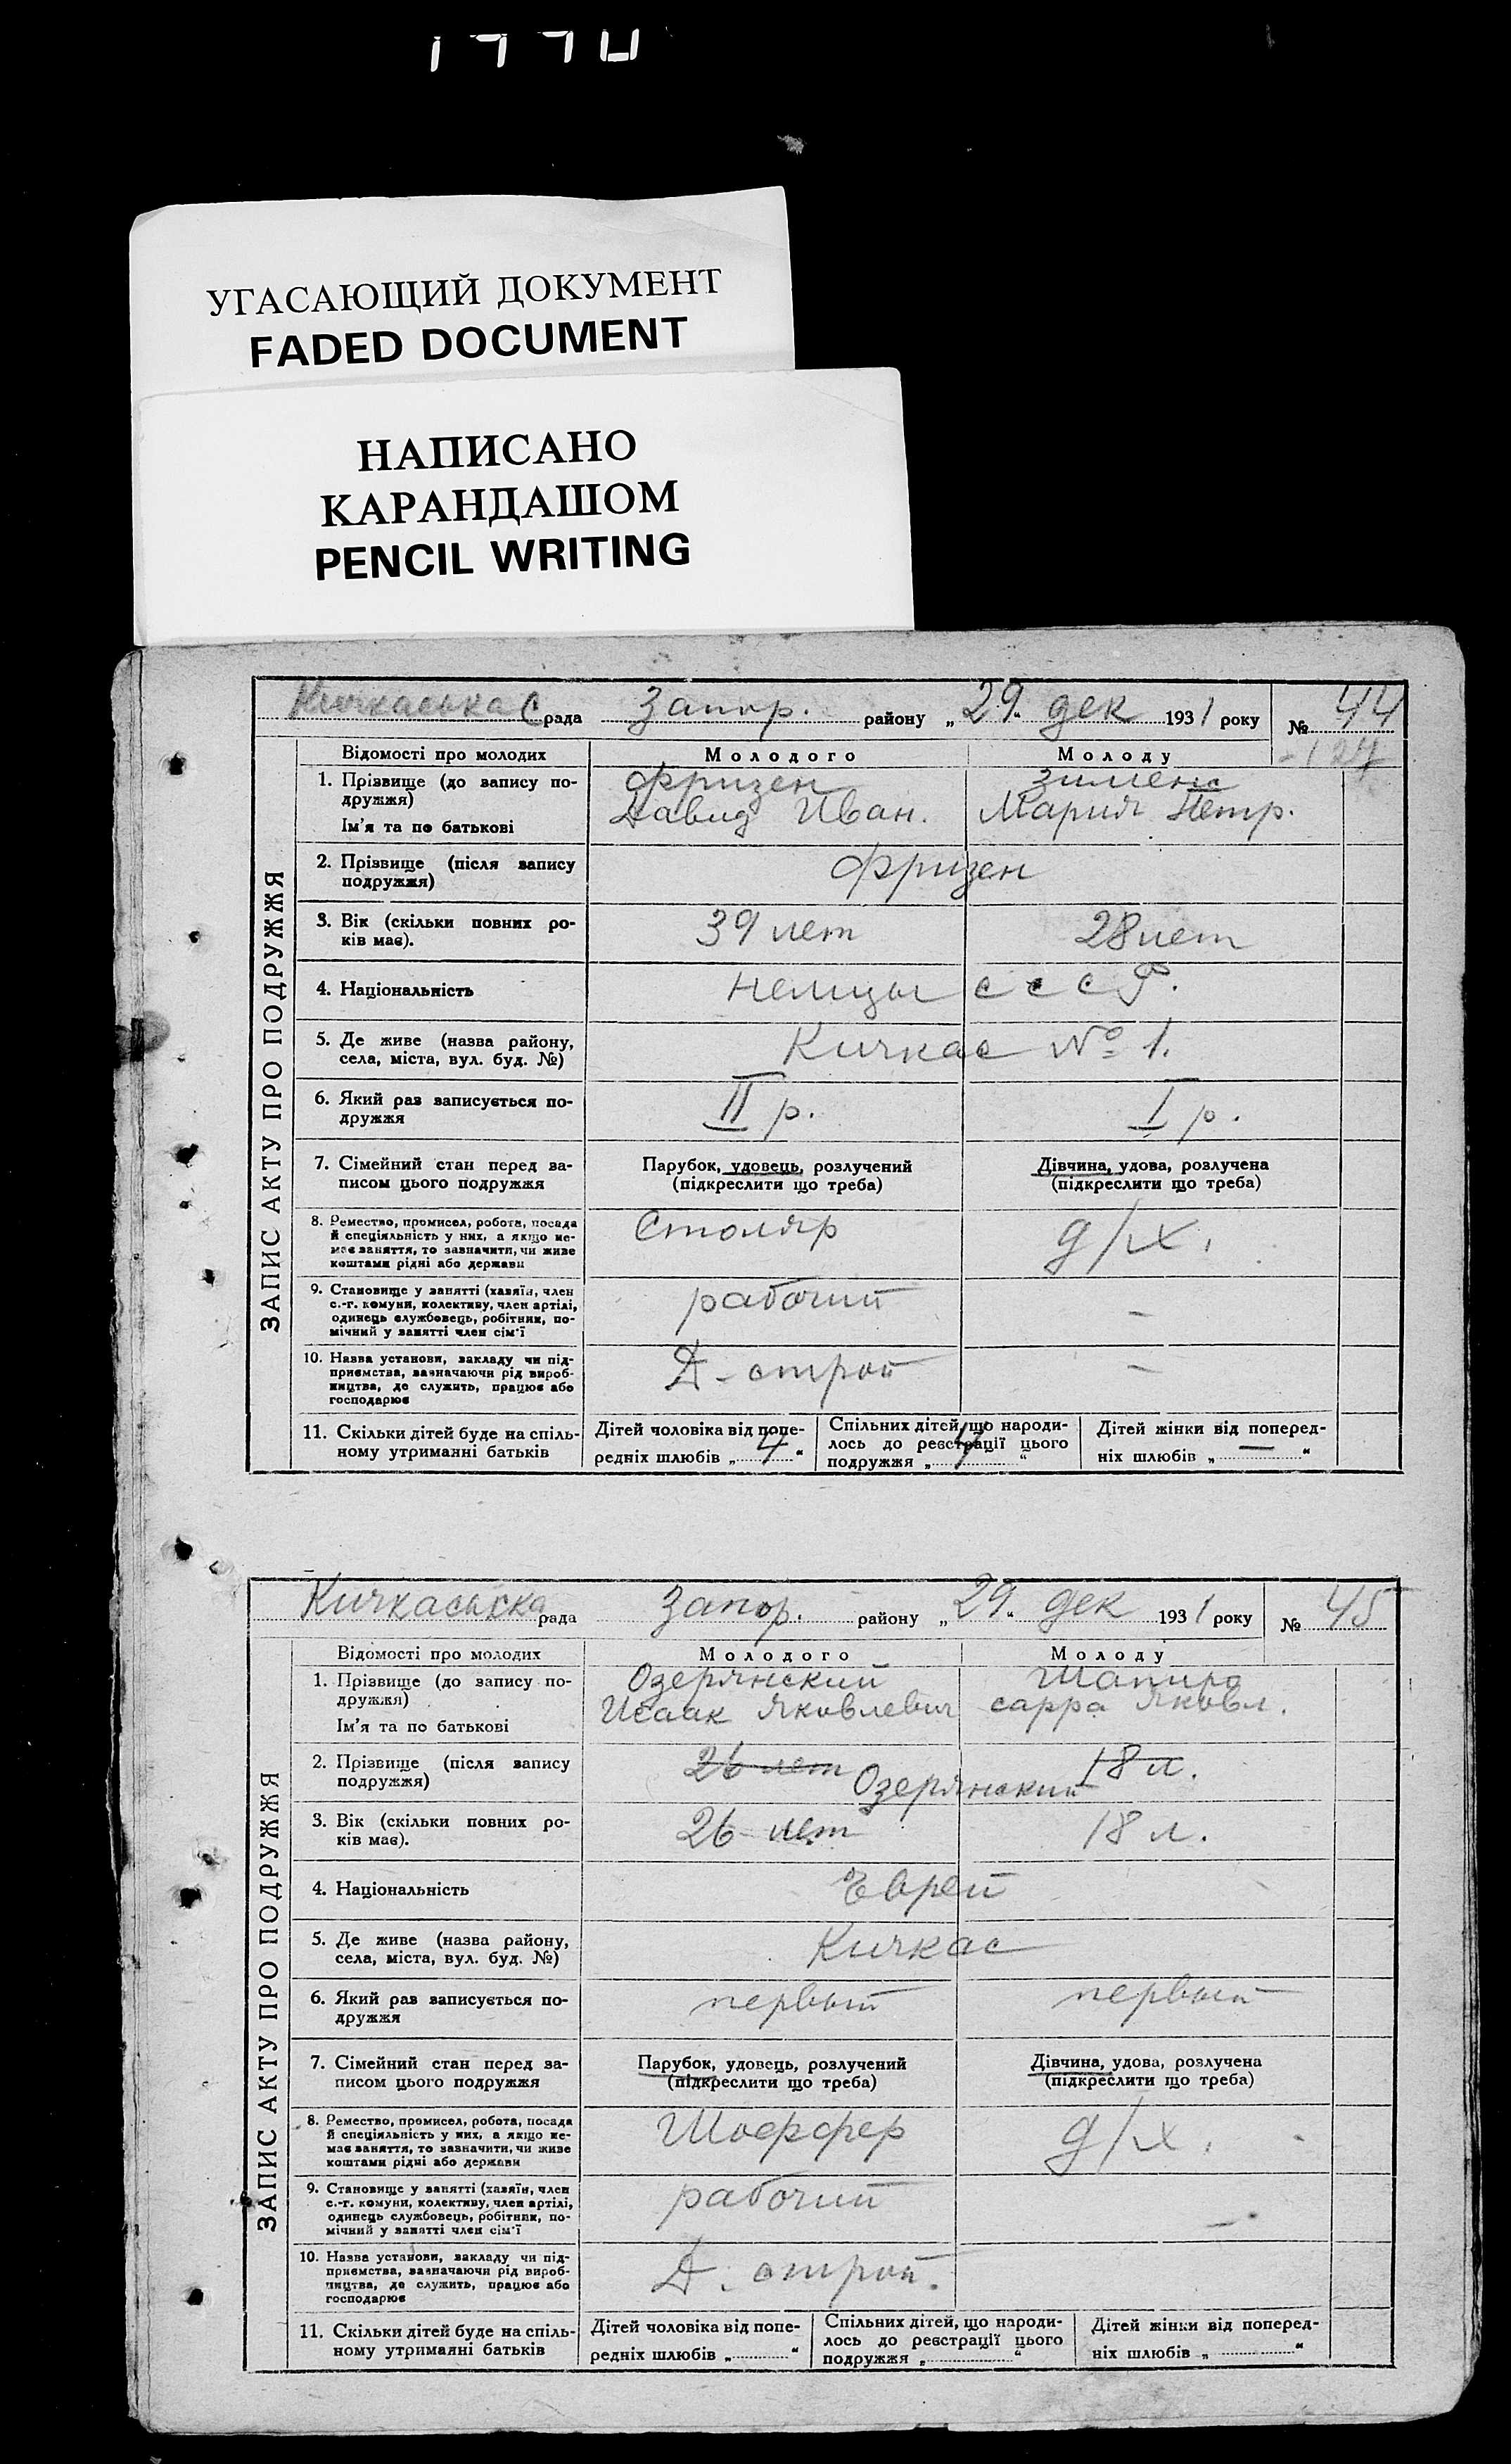 УГАСАЮЩИЙ ДОКУМЕНТ
FADED DOCUMENT
НАПИСАНО
КАРАНДАШОМ
PENCIL WRITING
Кичкаська С рада Запор. району „29“ дек 1931 року № 44
- 124
ЗАПИС АКТУ ПРО ПОДРУЖЖЯ
Відомості про молодих Молодого Молоду
1. Прізвище (до запису по- Фризен
дружжя)
Ім'я та по батькові Давид Иван. Мария Петр.
2. Прізвище (після запису Фризен
подружжя)
3. Вік (скільки повних ро- 39 лет 28 лет
ків має).
4. Національність немцы СССР.
5. Де живе (назва району, Кичкас № 1.
села, міста, вул. буд. №)
6. Який раз записується по- II р. I р.
дружжя
7. Сімейний стан перед за- Парубок, удовець, розлучений Дівчина, удова, розлучена
писом цього подружжя (підкреслити що треба) (підкреслити що треба)
8. Ремество, промисел, робота, посада Столяр д/х.
й спеціяльність у них, а якщо не-
має заняття, то зазначити, чи живе
коштами рідні або держави
9. Становище у занятті (хазяїн, член рабочий –
с.-г. комуни, колективу, член артілі,
одинець службовець, робітник, по-
мічний у занятті член сім'ї
10. Назва установи, закладу чи під- Д-строй –
приємства, зазначаючи рід вироб-
ництва, де служить, працює або
господарює
11. Скільки дітей буде на спіль- Дітей чоловіка від попе- Спільних дітей, що народи- Дітей жінки від поперед-
ному утриманні батьків редніх шлюбів „4“ лось до реєстрації цього ніх шлюбів „—“
подружжя „4“
Кичкаська рада Запор. району „29“ дек 1931 року № 45
ЗАПИС АКТУ ПРО ПОДРУЖЖЯ
Відомості про молодих Молодого Молоду
1. Прізвище (до запису по- Озерянский Шапиро
дружжя)
Ім'я та по батькові Исаак Яковлевич сарра Яковл.
2. Прізвище (після запису 26 лет 18 л.
подружжя) Озерянский
3. Вік (скільки повних ро- 26 лет 18 л.
ків має).
4. Національність Еврей
5. Де живе (назва району, Кичкас
села, міста, вул. буд. №)
6. Який раз записується по- первый первый
дружжя
7. Сімейний стан перед за- Парубок, удовець, розлучений Дівчина, удова, розлучена
писом цього подружжя (підкреслити що треба) (підкреслити що треба)
8. Ремество, промисел, робота, посада Шоффер д/х.
й спеціяльність у них, а якщо не-
має заняття, то зазначити, чи живе
коштами рідні або держави
9. Становище у занятті (хазяїн, член рабочий –
с.-г. комуни, колективу, член артілі,
одинець службовець, робітник, по-
мічний у занятті член сім'ї
10. Назва установи, закладу чи під- Д. строй.
приємства, зазначаючи рід вироб-
ництва, де служить, працює або
господарює
11. Скільки дітей буде на спіль- Дітей чоловіка від попе- Спільних дітей, що народи- Дітей жінки від поперед-
ному утриманні батьків редніх шлюбів „ “ лось до реєстрації цього ніх шлюбів „ “
подружжя „ “